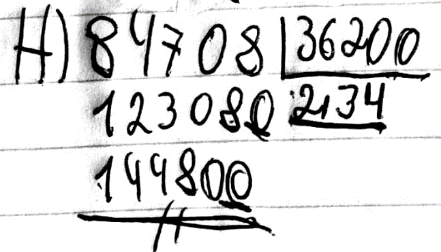 H) 84708 36200
123080 2,34
144800